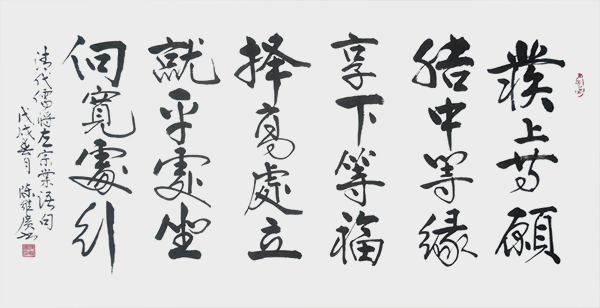 撲上等願
結中等緣
享下等福
择高處立
就平處坐
向寬處行
清代儒将左宗棠语句
戊戌春月